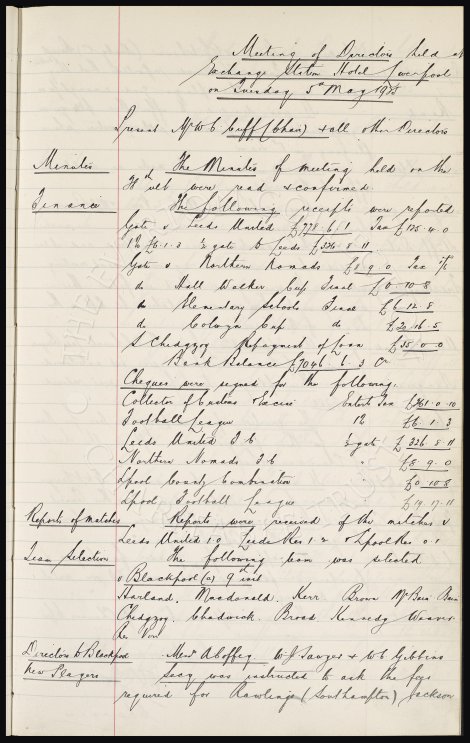 Meeting of Directors held at
Exchange Station Hotel Liverpool
on Tuesday 5th May 1925
Present Mr W C Cuff (Chair) & all other Directors
Minutes The Minutes of meeting held on the
ult were read & confirmed.
Finance The following receipts were reported
Gate v Leeds United £778.6.1 Tax £125.4.0
1% £6.1.3 gate to Leeds £326.8.11
Gate v Northern Nomads £8.9.0 Tax
do Hall Walker Cup Final £0.10.8
do Elementary Schools Final £6.12.8
do Cup do £2.16.5
S Chedgzoy Repayment of Loan £35.0.0
Bank Balance £7046.6.3 Cr
Cheques were signed for the following.
Collector of Customs & Excise Entert Tax
Football League 1% £6.1.3
Leeds United F C gate £326.8.11
Northern Nomads F C " £8.9.0
Lpool County Combination " £0.10.8
Lpool Football League " £19.17.11
Reports of matches Reports were received of the matches v
Leeds United 1.0 Leeds Res v Lpool Res 0.1
Team Selection The following team was selected
v Blackpool (a) 9th inst
Harland. Macdonald. Kerr Brown McBain
Chedgzoy. Chadwick. Broad Kennedy Weaver
Directors to Blackpool Messrs A Coffey W J Sawyer & W C Gibbins
New Players Secy was instructed to ask the fees
required for Rawlings (Southampton) Jackson